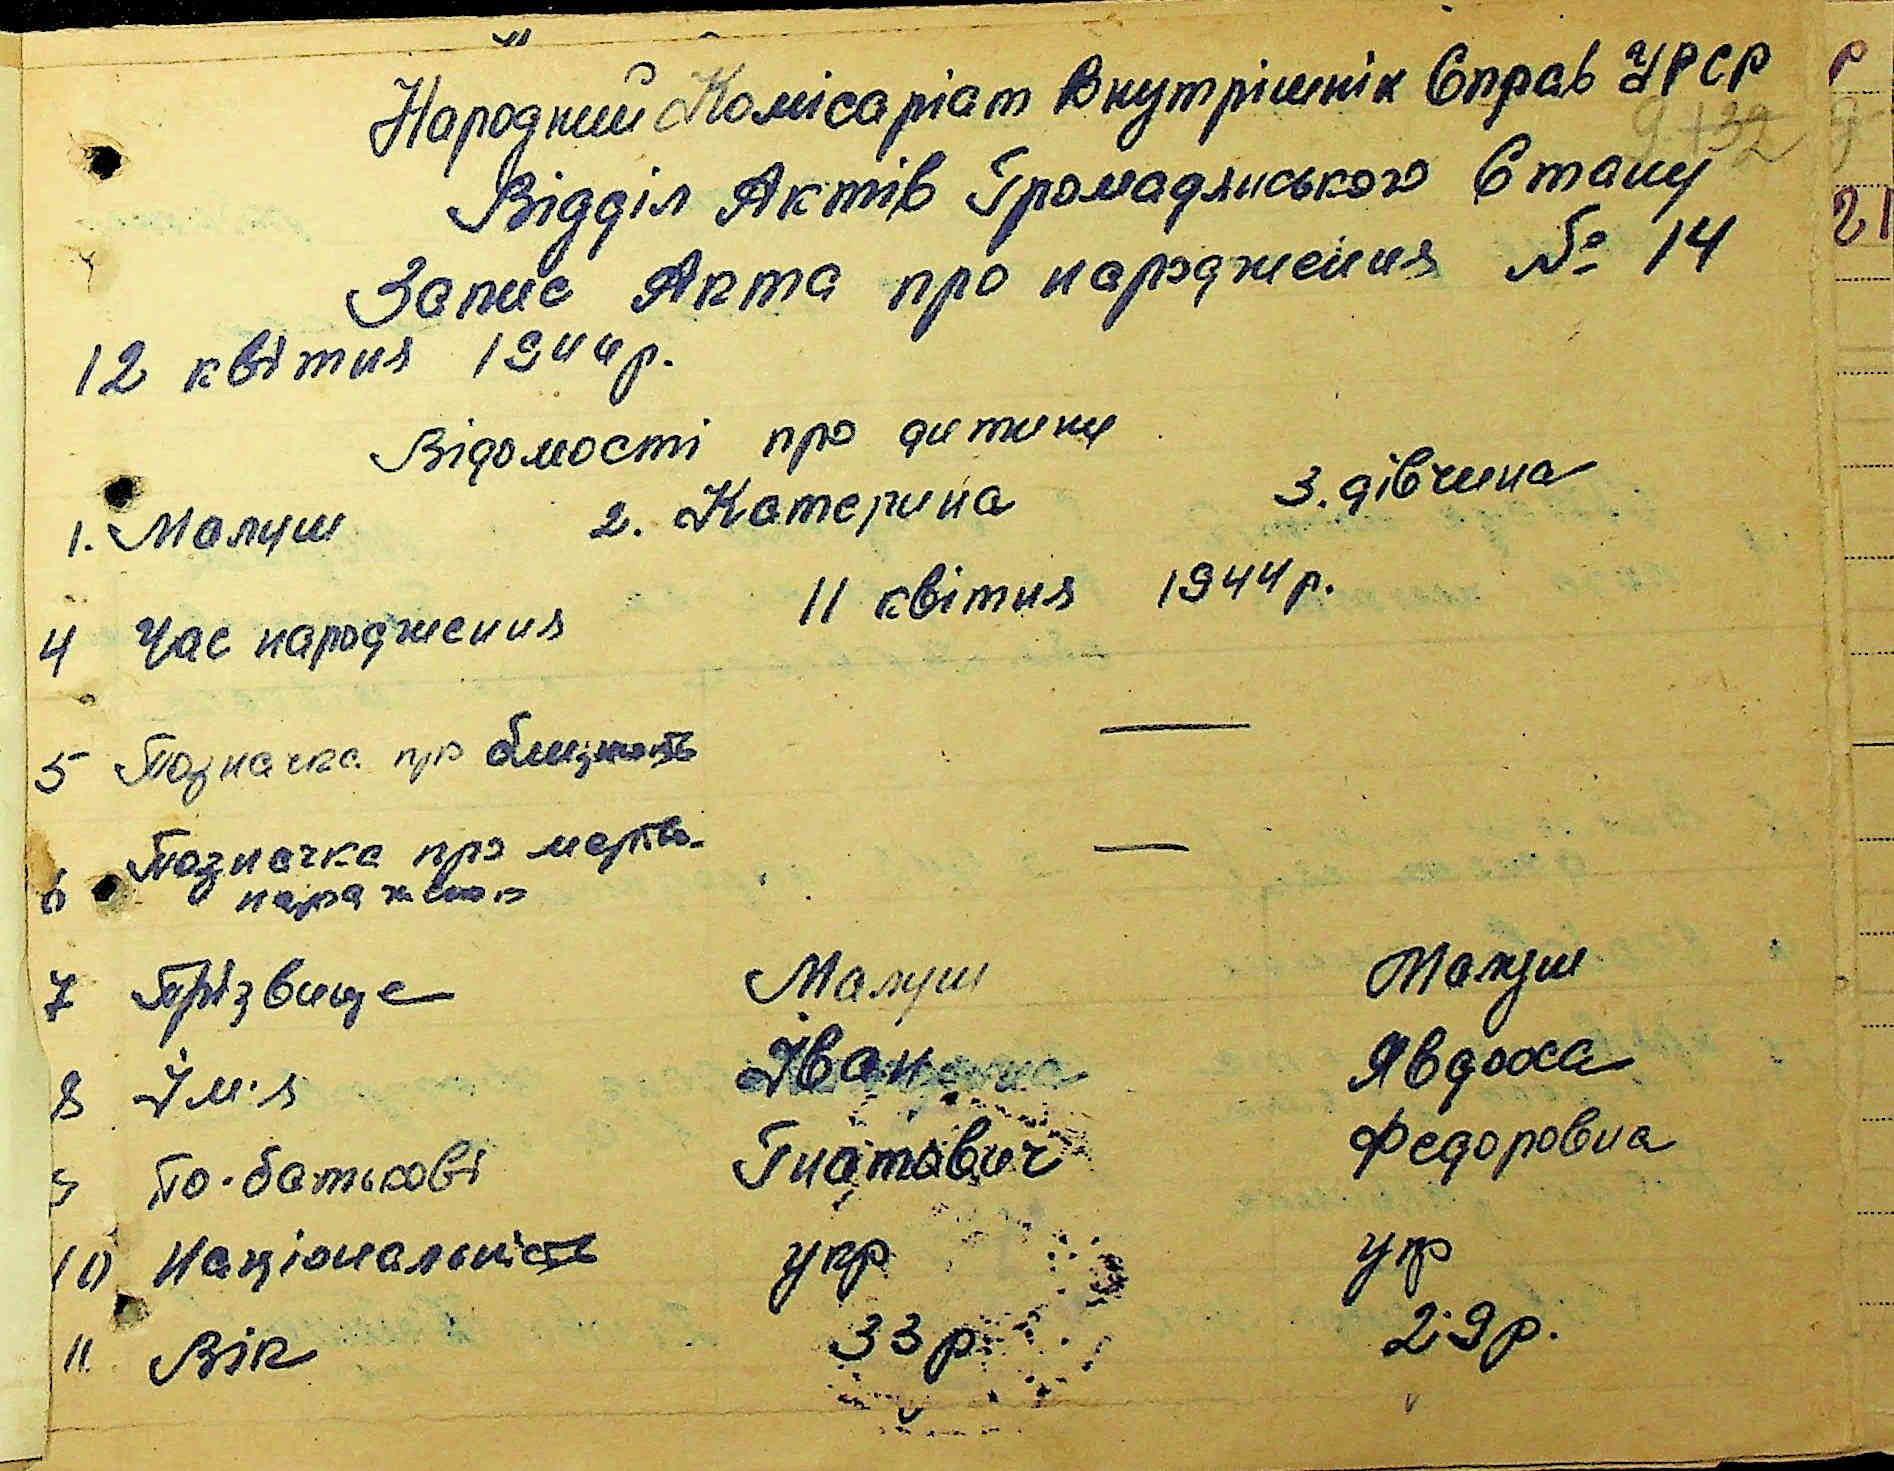 Народний Комісаріат Внутрішніх Справ УРСР
Відділ Актів Громадянського Стану
Запис Акта про народження № 14
12 квітня 1944р.
Відомості про дитину
1. Малуш 2. Катерина 3. дівчина
4 Час народження 11 квітня 1944р.
5 Позначка про близність —
6 Позначка про мертво- —
7 Прізвище Малуш Малуш
8 Ім'я Іван Явдоха
9 По-батькові Гнатович Федоровна
10 Національність укр укр
11. Вік 33р 29р.